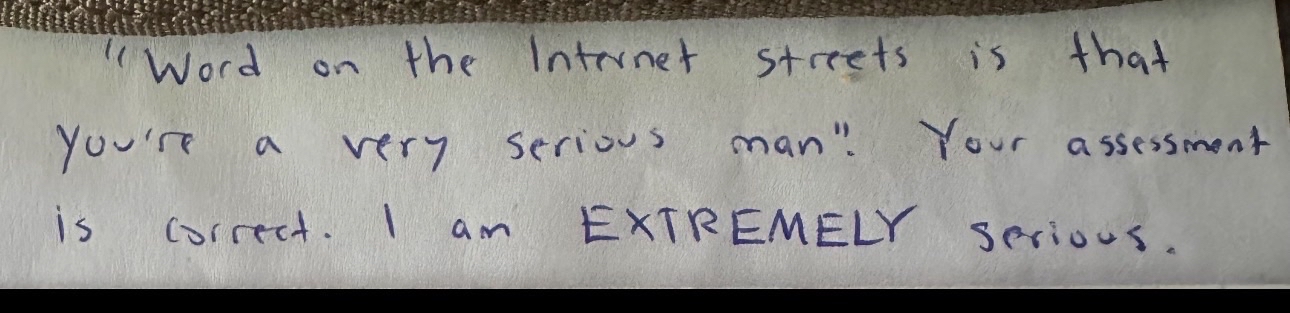 "Word on the Internet streets is that
you're a very serious man". Your assessment
is correct. I am EXTREMELY serious.